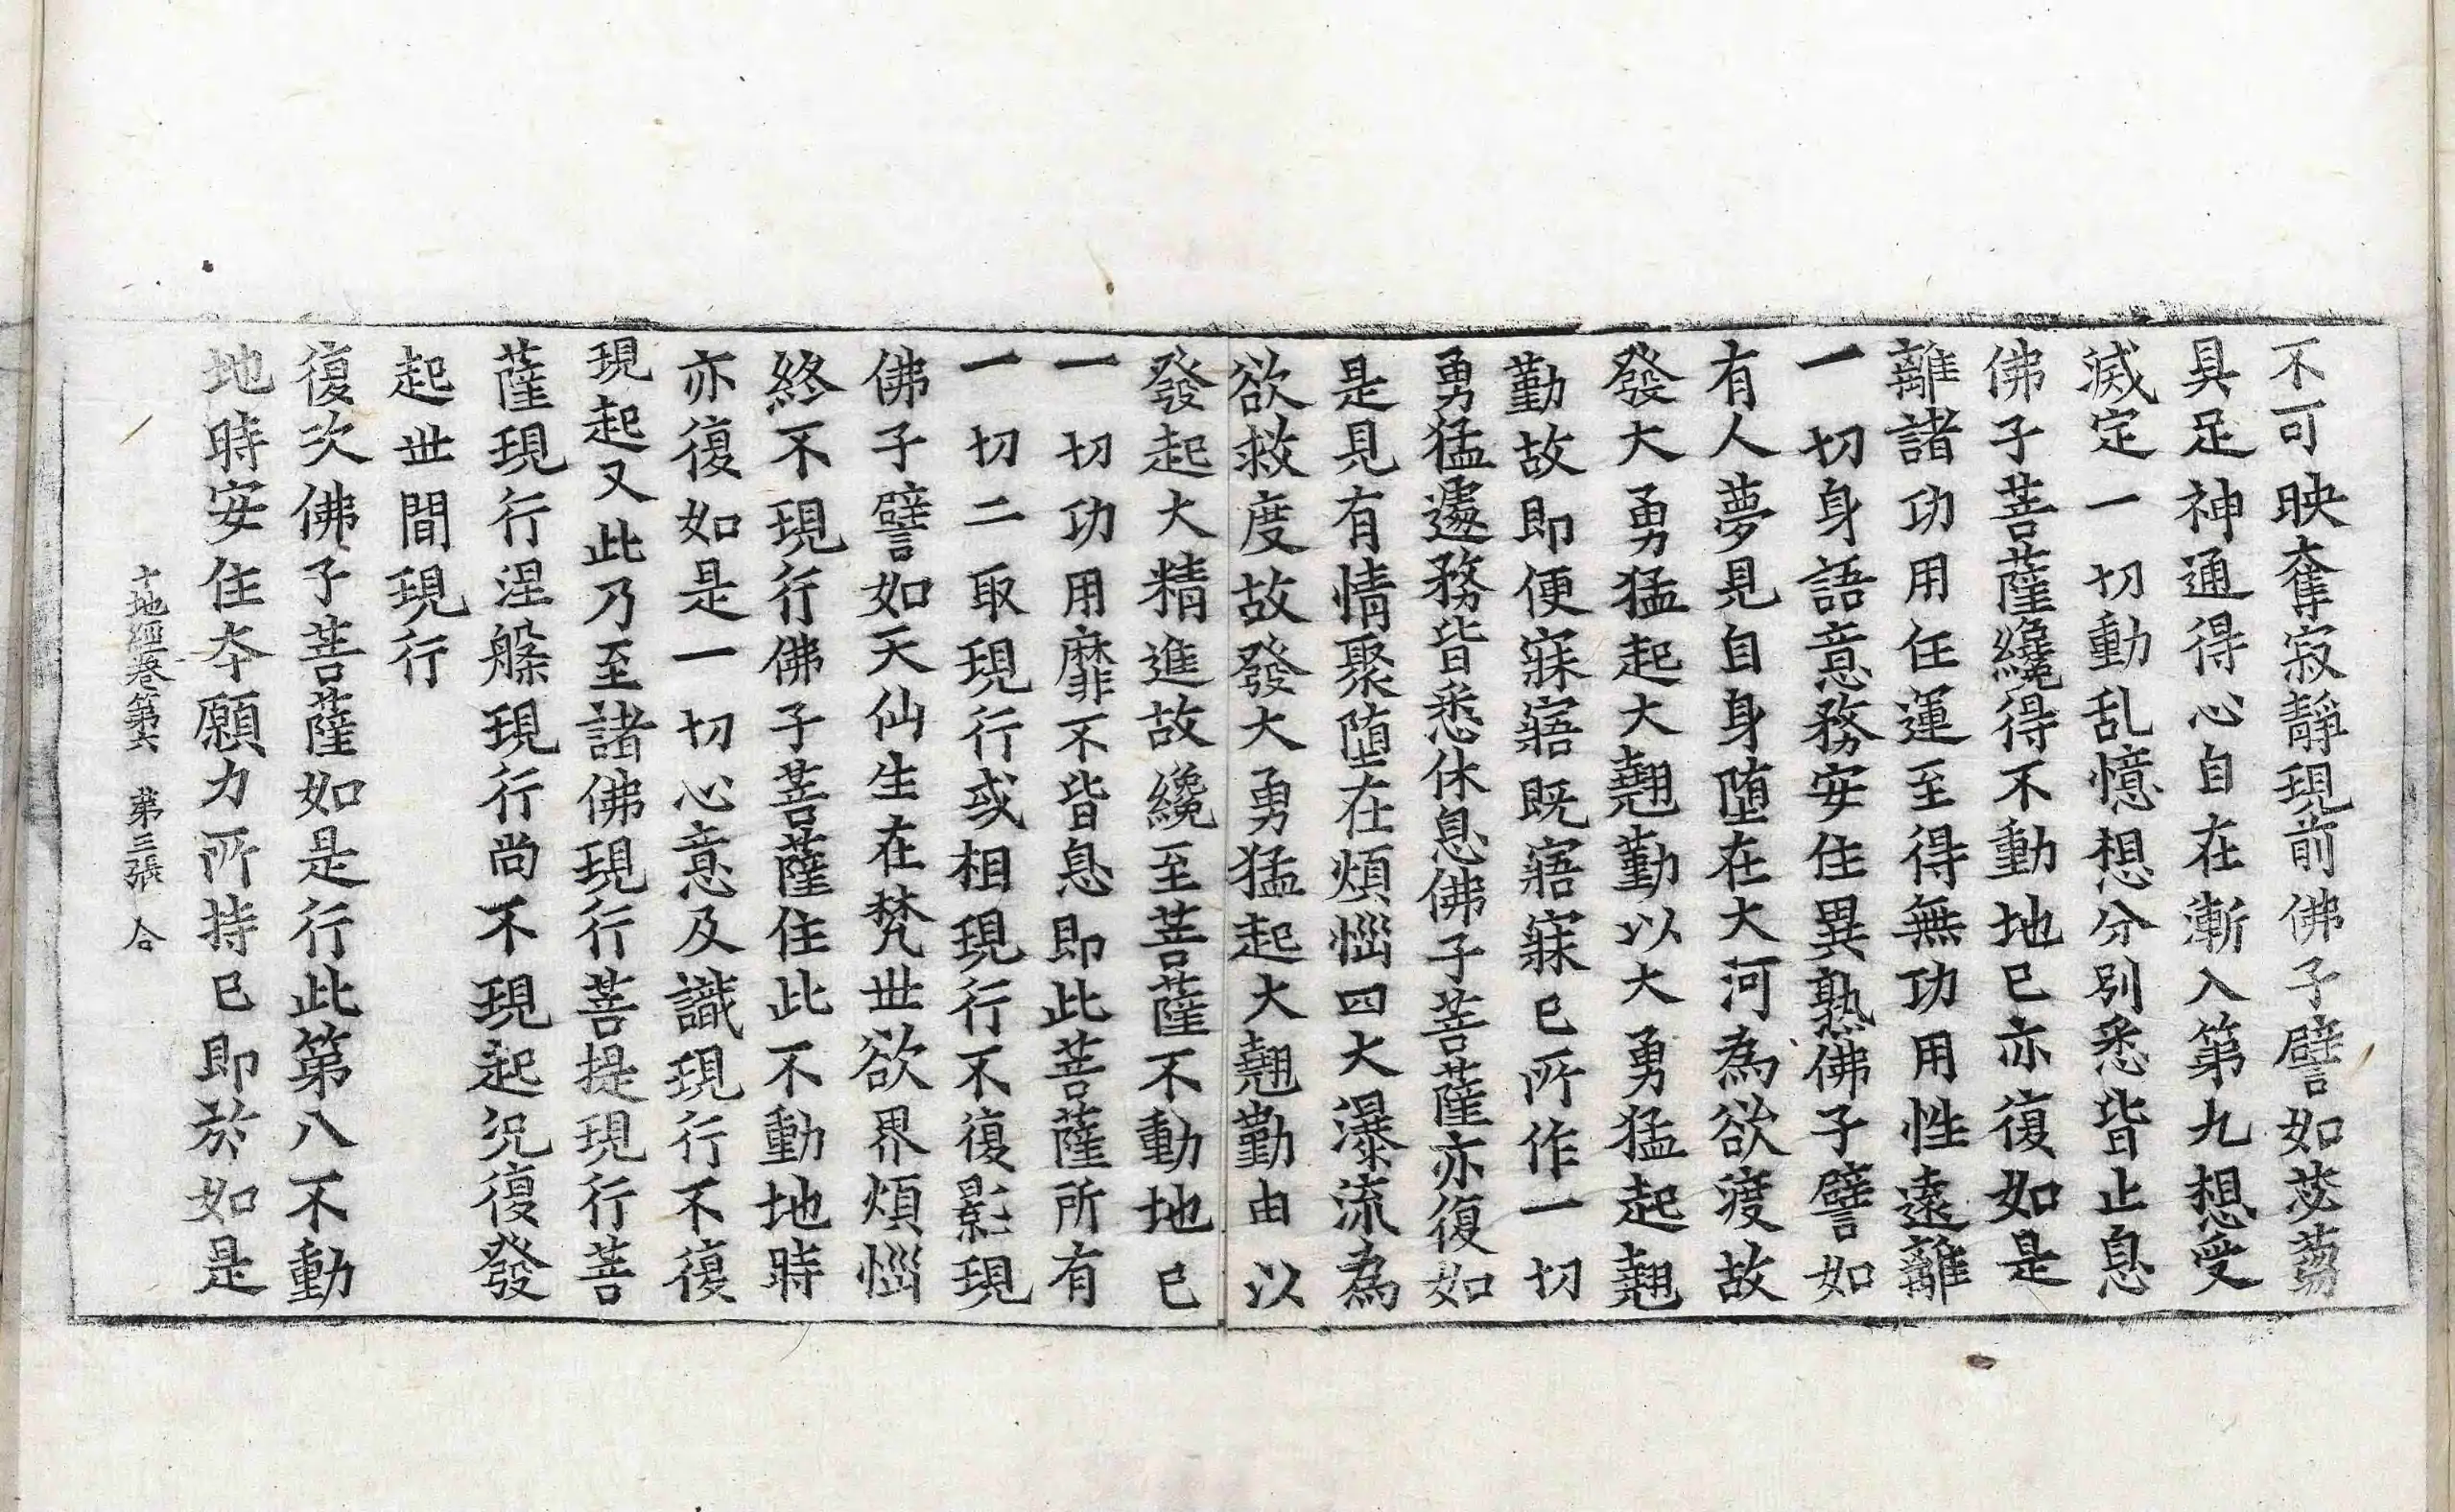 不可映奪寂靜現前佛子譬如苾蒭
具足神通得心自在漸入第九想受
滅定一切動乱憶想分別悉皆止息
佛子菩薩纔得不動地已亦復如是
離諸功用任運至得無功用性遠離
一切身語意務安住異熟佛子譬如
有人夢見自身墮在大河為欲渡故
發大勇猛起大翹勤以大勇猛起翹
勤故即便寐寤既寤寐已所作一切
勇猛遽務皆悉休息佛子菩薩亦復如
是見有情聚墮在煩惱四大瀑流為
欲救度故發大勇猛起大翹勤由以
發起大精進故纔至菩薩不動地已
一切功用靡不皆息即此菩薩所有
一切二取現行或相現行不復影現
佛子譬如天仙生在梵世欲界煩惱
終不現行佛子菩薩住此不動地時
亦復如是一切心意及識現行不復
現起又此乃至諸佛現行菩提現行菩
薩現行涅槃現行尚不現起況復發
起世間現行
復次佛子菩薩如是行此第八不動
地時安住本願力所持已即於如是
十地經卷第六　第三張　合